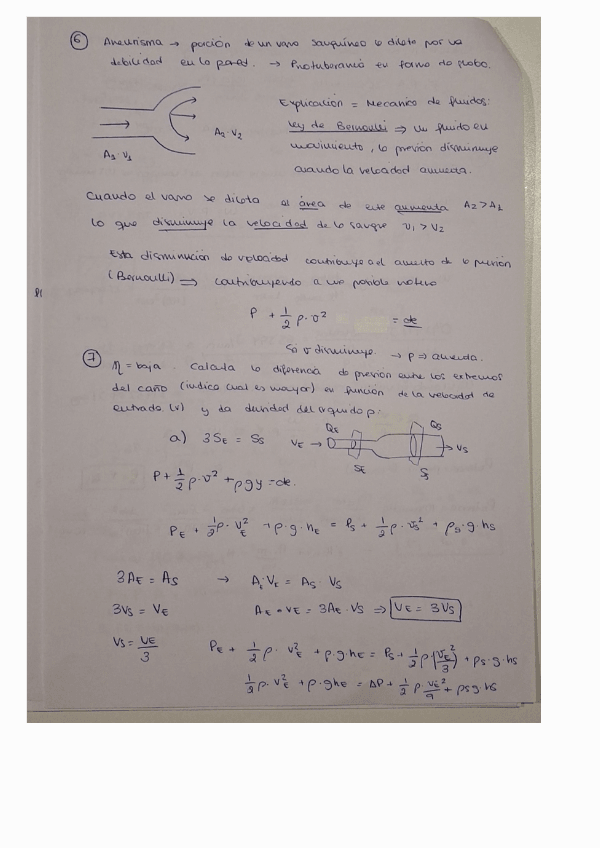 6 Aneurisma → porción de un vaso sanguíneo se dilata por una
debilidad en la pared. → Protuberancia en forma de globo.
Explicación = Mecanica de fluidos:
Ley de Bernoulli ⇒ Un fluido en
movimiento, la presión disminuye
cuando la velocidad aumenta.
A2 V2
A1 V1
Cuando el vaso se dilata el área de este aumenta A2 > A1
lo que disminuye la velocidad de la sangre v1 > v2
Esta disminución de velocidad contribuye al aumento de la presión
(Bernoulli) ⇒ contribuyendo a una posible
P + 1/2 ρ · v² = cte
Si v disminuye. → P ⇒ aumenta.
7 η = baja. Calcula la diferencia de presión entre los extremos
del caño (indica cual es mayor) en función de la velocidad de
entrada (v) y la densidad del líquido ρ.
a) 3SE = SS
QE QS
VE → VS
SE S
P + 1/2 ρ · v² + ρgy = cte.
PE + 1/2 ρ · VE² + ρ · g · hE = PS + 1/2 ρ · VS² + ρS · g · hS
3AE = AS → A · VE = AS · VS
3VS = VE AE · VE = 3AE · VS ⇒ VE = 3VS
VS = VE/3 PE + 1/2 ρ · VE² + ρ · g · hE = PS + 1/2 ρ (VE/3)² + ρS · g · hS
1/2 ρ · VE² + ρ · ghE = ΔP + 1/2 ρ · VE²/9 + ρS g hS